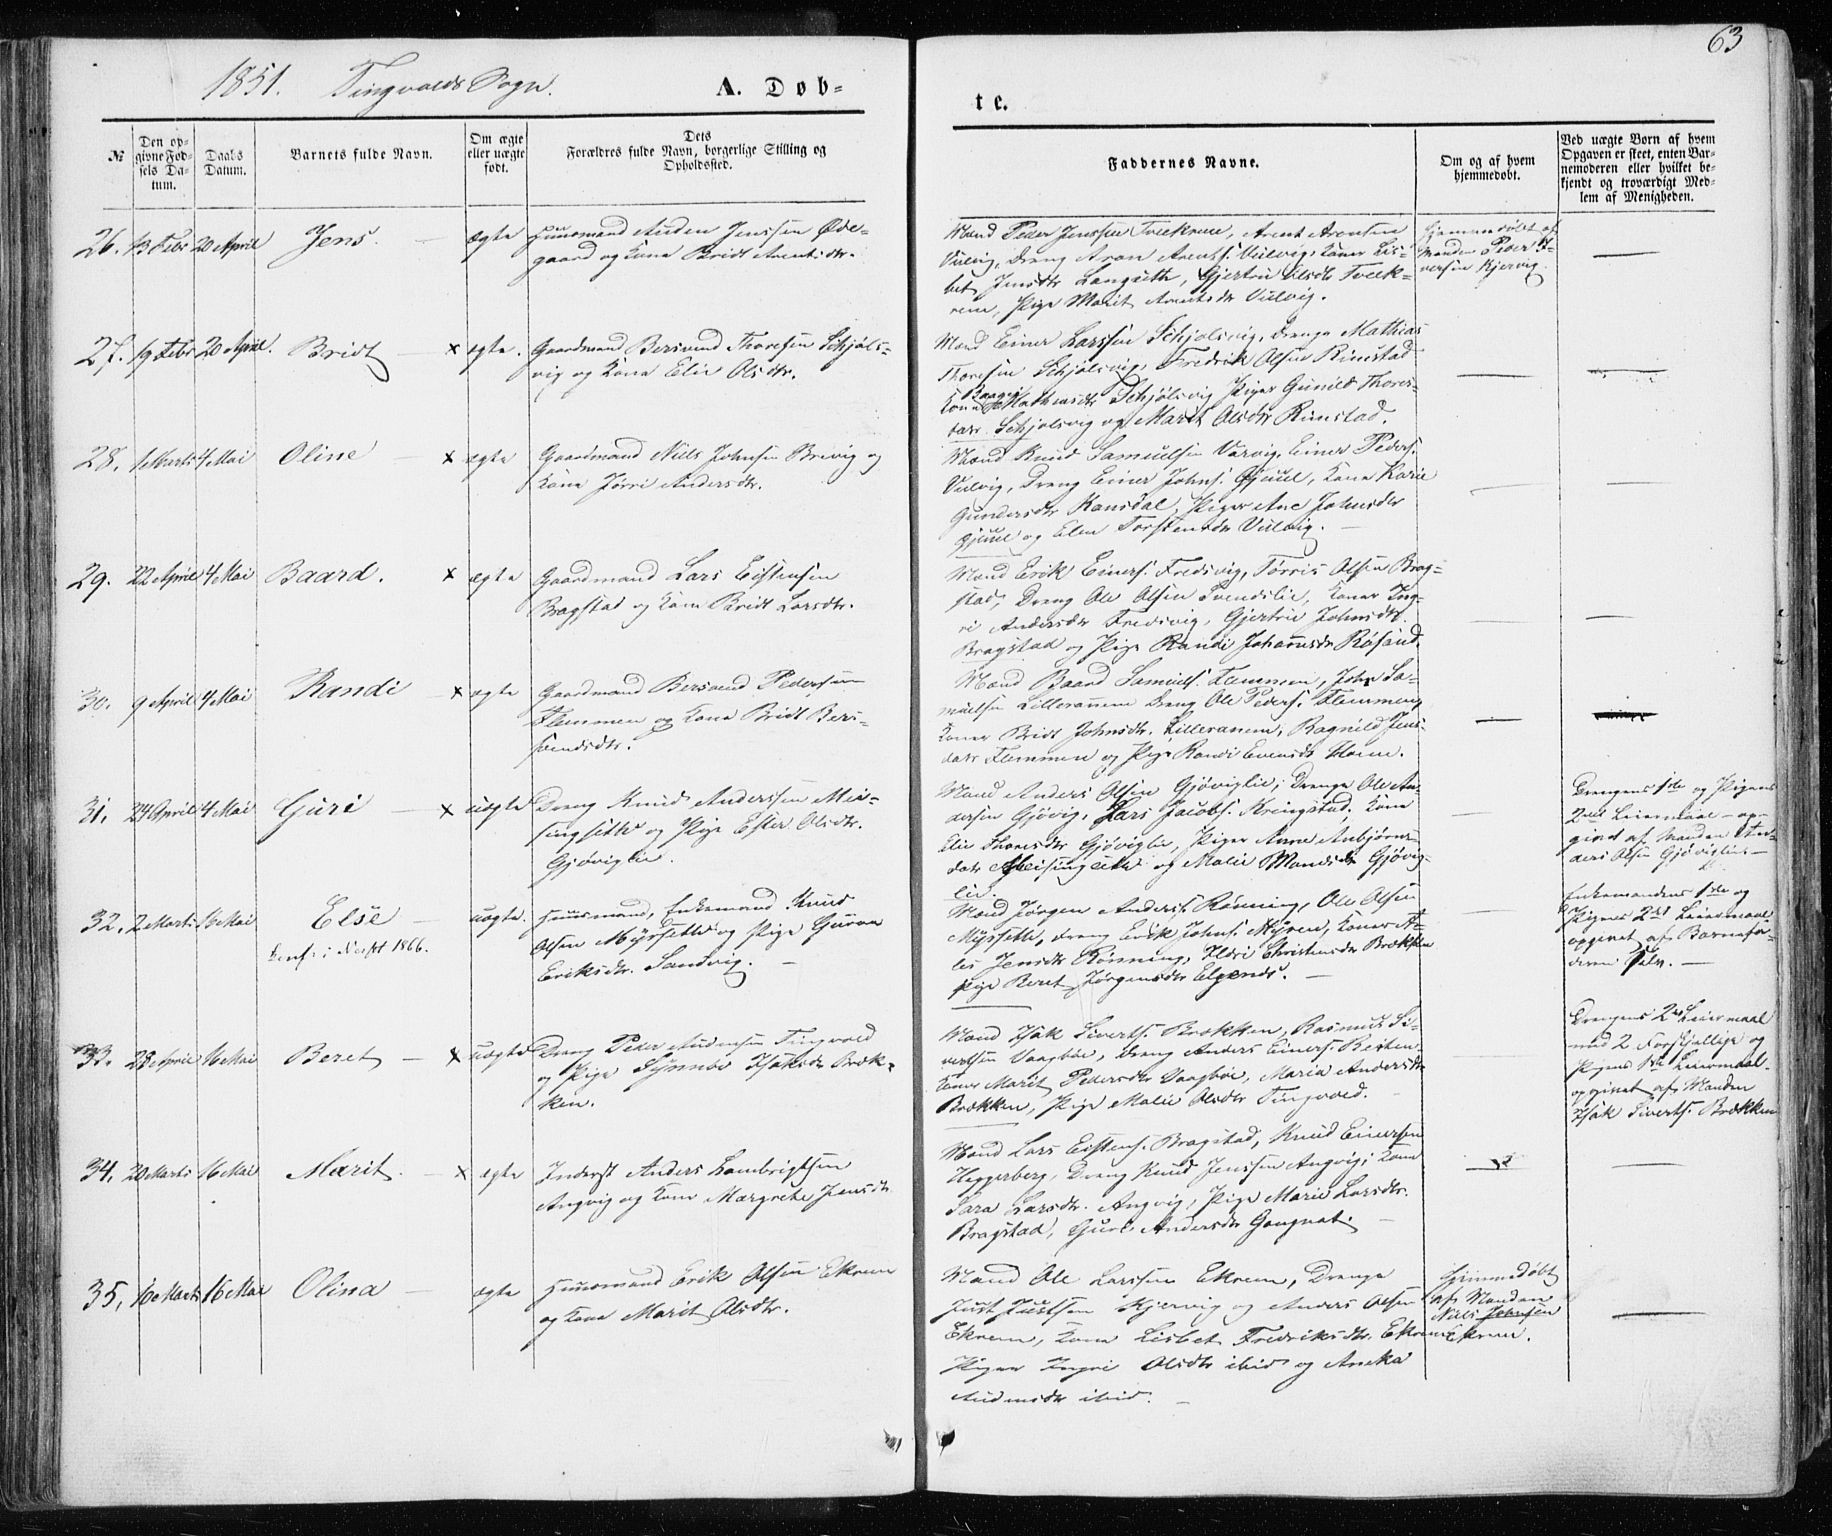 63
1851. Tingvolds Sogn. A. Døb-
te.
№
Den op-
givne Fød-
sels Da-
tum.
Daabs
Datum.
Barnets fulde Navn.
Om ægte
eller uægte
født.
Dets
Forældres fulde Navn, borgerlige Stilling og
Opholdssted.
Faddernes Navne.
Om og af hvem
hjemmedøbt.
Ved uægte Børn af hvem
Opgaven er skeet, enten Bar-
nemoderen eller hvilket be-
kjendt og troværdigt Med-
lem af Menigheden.
26. 13 Febr 20 April Jens. ægte
Huusmand Auden Jenssen Øde-
gaard og Kone Bridt Arentsdtr.
Mænd Peder Jenssen Tveekrem, Arent Aronsen
Vulvig, Dreng Aron Arents. Vulvig, Koner Lis-
bet Jensdtr Langsæth, Gjertru Olsdtr Tveek-
rem, Pige Marit Arentsdtr Vulvig.
Hjemmedøbt af
Manden Peder I-
versen Kjervig.
27. 19 Febr 20 April. Bridt x ægte.
Gaardmand Bersvend Thoresen Schjøls-
vig og Kone Elie Olsdtr.
Mænd Einer Larssen Schjølsvig, Drenge Mathias
Thoresen Schjølsvig, Fredrik Olsen Rimstad
Kone Mathiasdtr Schjølsvig Piger Gunild Thores-
datr. Schjølsvig og Marit Olsdtr Rimstad.
28. 1 Marts 4 Mai Oline x ægte
Gaardmand Niels Johnsen Brevig og
Kone Jørri Andersdtr.
Mænd Knud Samuelsen Varvig, Einer Peders.
Vulvig, Dreng Einer Johns. Gjuul, Kone Karie
Gundersdtr Kansdal, Piger Ane Johnsdtr
Gjuul og Elen Torstensdtr Vulvig.
29. 22 April 4 Mai Baard. x ægte
Gaardmand Lars Eistensen
Bragstad og Kone Bridt Larsdtr.
Mænd Erik Einers. Fredsvig, Tørris Olsen Brag-
stad, Dreng Ole Olsen Svendslie, Koner Ing-
ri Andersdtr Fredsvig, Gjertrue Johnsdtr.
Bragstad og Pige Randi Johannsdtr Røsand.
30. 9 April 4 Mai Randi x ægte
Gaardmand Bersvend Pedersen
Flemmen og Kone Bridt Ber-
svendsdtr.
Mænd Baard Samuels. Flemmen, John Sa-
muelsen Lilleranem Dreng Ole Peders. Flemmen,
Koner Bridt Johnsdtr. Lilleranem, Ragnild Jens-
datr Flemmen og Pige Randi Evensdtr
31. 24 April 4 Mai Guri x uægte
Dreng Knud Anderssen Mei-
singsætte og Pige Ester Olsdtr.
Gjøviglie.
Mænd Anders Olsen Gjøviglie; Drenge Ole An-
dersen Gjøvig, Lars Jacobs. Kringstad, Kone
Elie Thoresdtr Gjøviglie, Piger Anne Anbjørns-
datr Meisingsætte og Malie Monsdtr Gjøvig-
lie.
Drengens 1ste og Pigens
2det Leiermaal - op-
givet af Manden An-
ders Olsen Gjøviglie.
32. 2 Marts 16 Mai Else uægte.
Konf. i Kirsft 1866.
Huusmand, Enkemand Knud
Olsen Myrsætte og Pige Guroe
Eriksdtr. Sandvig.
Mænd Jørgen Anders. Rønning, Ole Olsen
Myrsætte, Dreng Erik Johns. Myren, Koner A-
lis Jensdtr Rønning, Ildri Christensdtr Brækken
Pige Beret Jørgensdtr
Enkemandens 1ste og
Pigens 2det Leiermaal
opgivet af Barnefa-
deren Selv.
33. 28 April 16 Mai Beret x uægte
Dreng Peder Audensen Tingvold
og Pige Synnøv Isaksdtr Bræk-
ken.
Mænd Isak Siverts. Brækken, Rasmus Si-
vertsen Vaagbøe, Dreng Anders Einers. Resten
Koner Marit Pedersdtr Vaagbøe, Maria Andersdtr
Brækken, Pige Malie Olsdtr Tingvold.
Drengens 2det Leiermaal
med 2 Forskjellige og
Pigens 1ste Leiermaal.
opgivet af Manden
Isak Siverts. Brækken
34. 20 Marts 16 Mai Marit. x ægte
Inderst Anders Lambrigtsen
Angvig og Kone Margrete Jensdtr
Mænd Lars Eistens. Bragstad, Knud Einersen
Heggerberg, Dreng Knud Jenssen Angvig, Kone
Sara Larsdtr. Angvig, Pige Marie Larsdtr.
Bragstad, Guri Andersdtr Gangnat.
35. 16 Marts 16 Mai Olina ægte
Huusmand Erik Olsen Ekrem
og Kone Marit Olsdtr.
Mænd Ole Larssen Ekrem, Drenge
Just Justsen Kjervig og Anders Olsen
Ekrem, Kone Lisbet Fredriksdtr. Ekrem
Piger Ingri Olsdtr ibid og Aneka
Audensdtr ibid.
Hjemmedøbt
af Manden
Niels Johnsen
Ekrem.